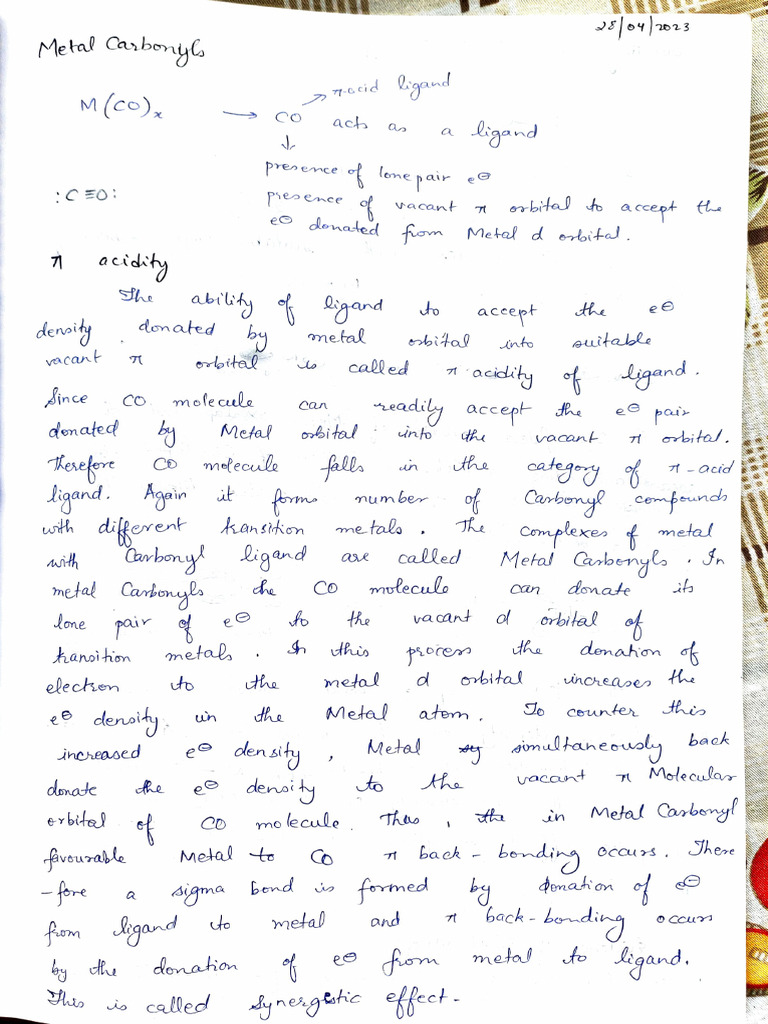 28/04/2023
Metal Carbonyls
π-acid ligand
M(CO)ₓ → CO acts as a ligand
presence of lone pair e⊖
:C≡O: presence of vacant π orbital to accept the
e⊖ donated from Metal d orbital.
π acidity
The ability of ligand to accept the e⊖
density donated by metal orbital into suitable
vacant π orbital is called π acidity of ligand.
Since CO molecule can readily accept the e⊖ pair
donated by Metal orbital into the vacant π orbital.
Therefore CO molecule falls in the category of π-acid
ligand. Again it forms number of Carbonyl compounds
with different transition metals. The complexes of metal
with Carbonyl ligand are called Metal Carbonyls. In
metal Carbonyls the CO molecule can donate its
lone pair of e⊖ to the vacant d orbital of
transition metals. In this process the donation of
electron to the metal d orbital increases the
e⊖ density in the Metal atom. To counter this
increased e⊖ density, Metal simultaneously back
donate the e⊖ density to the vacant π Molecular
orbital of CO molecule. Thus, the in Metal Carbonyl
favourable Metal to CO π back-bonding occurs. There
-fore a sigma bond is formed by donation of e⊖
from ligand to metal and π back-bonding occurs
by the donation of e⊖ from metal to ligand.
This is called Synergetic effect.